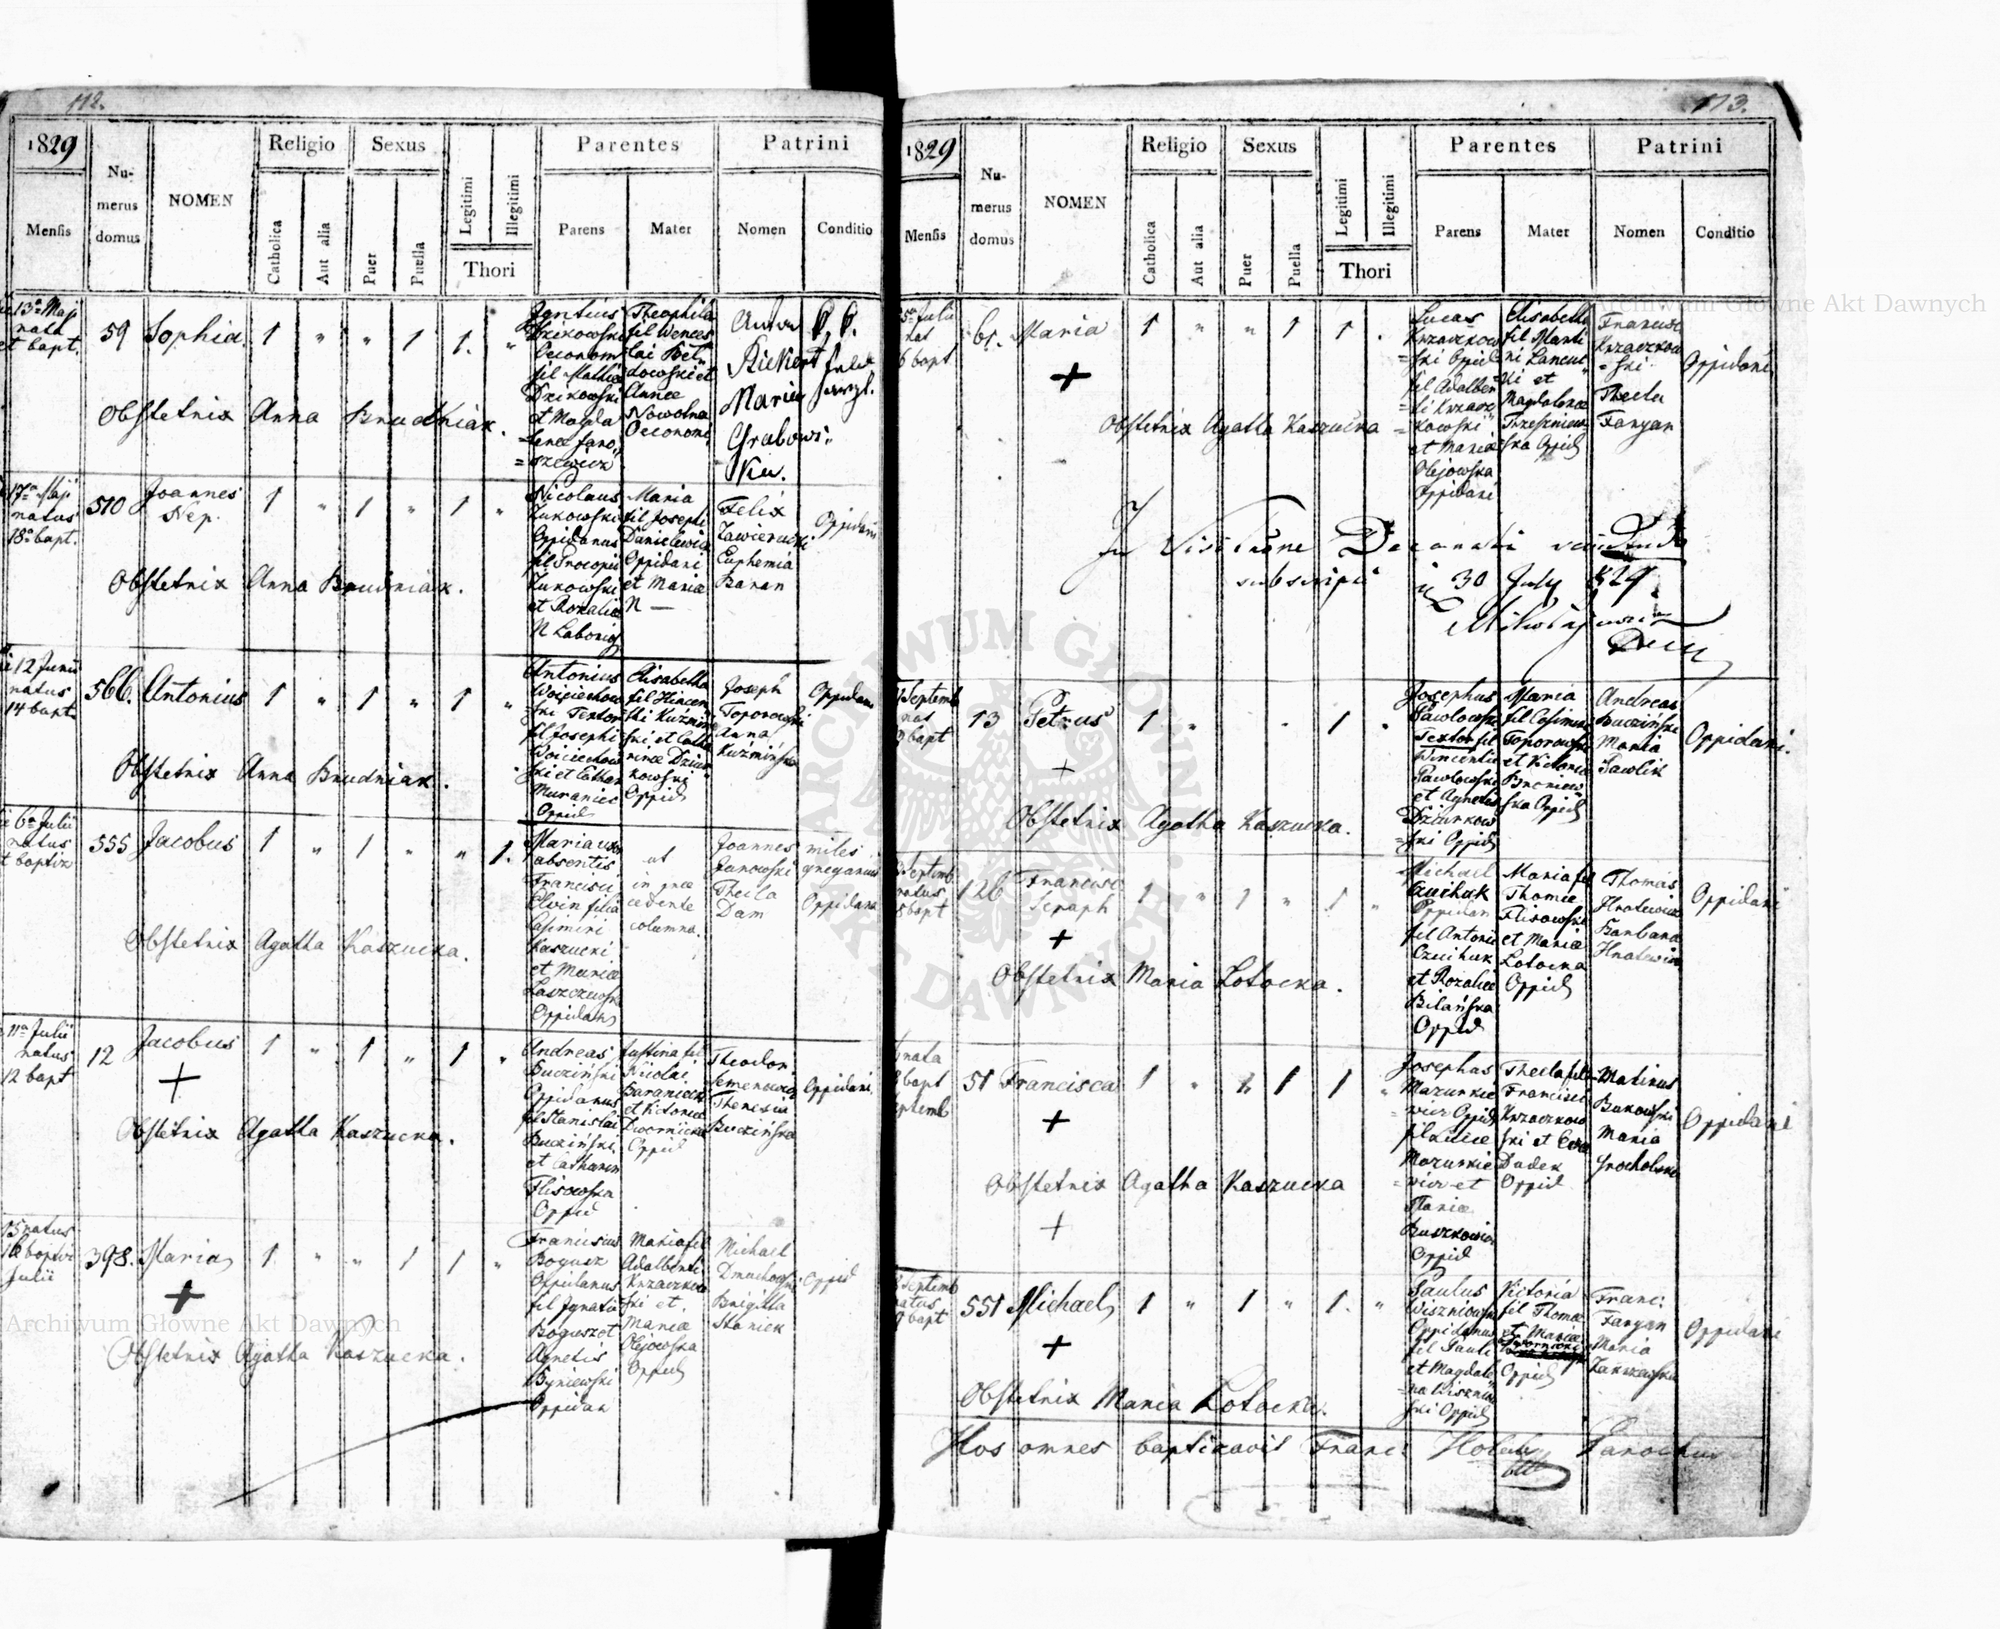 112.
1829
Mensis
Nu-
merus
domus
NOMEN
Religio
Catholica
Aut alia
Sexus
Puer
Puella
Legitimi
Illegitimi
Thori
Parentes
Parens
Mater
Patrini
Nomen
Conditio
13a Maji
nata
et bapt.
59
Sophia
1 " " 1 1. "
Dzikowski
Oeconom
fil Mathiae
Dzikowski
et Magda
lenae Jaro
=szewicz
Theophila
fil Wences
lai
dowski et
Annae
Nowotna
Oeconomi
Anton
Rickert
Maria
Grabows
Obstetrix Anna Brudniak.
17a Maji
natus
18a bapt.
510
Joannes
Nep.
1 " 1 " 1 "
Nicolaus
Zukowski
Oppidanus
fil Procopii
Zukowski
et Rozaliae
N
Maria
fil Josephi
Danielewicz
Oppidani
et Mariae
N —
Felix
Zawierucki
Euphemia
Baran
Oppidani
Obstetrix Anna Brudniak.
12 Junii
natus
14 bapt.
566.
Antonius
1 " 1 " 1 "
Antonius
Woyciechow
ski Textor
fil Josephi
Woiciechow
ski et Cathar
Muraniec
Oppid
Elisabetha
fil Vincen
tii Kuźmiń
ski et Catha
rinae Dziur
kowski
Oppid
Joseph
Toporowski
Anna
Kuźmińska
Oppidani
Obstetrix Anna Brudniak.
6a Julii
natus
et baptiz
555
Jacobus
1 " 1 " " 1.
Maria uxor
absentis
Francisci
Elvin filia
Casimiri
Kaszucki
et Mariae
Laszczewska
Oppidan
ut
in prae
cedente
columna.
Joannes
Janowski
Thecla
Dam
miles
gregarius
Oppidana
Obstetrix Agatha Kaszucka.
11a Julii
natus
12 bapt
12
Jacobus
1 " 1 " 1 "
Andreas
Bucziński
Oppidanus
fil Stanislai
Buczinski
et Catharin
Flisowska
Oppid
Justina fil
Nicolai
Baraniecki
et Victoriae
Dwornicka
Oppid
Theodor
Semenowicz
Theresia
Buczińska
Oppidani
Obstetrix Agatha Kaszucka.
15 natus
16 baptiz
Julii
398.
Maria
1 " " 1 1 "
Franciscus
Bogusz
Oppidanus
fil Ignatii
Bogusz et
Agnetis
Oppidan
Maria fil
Adalberti
Krzaczkow
ski et
Mariae
Olejowska
Oppid
Michael
Dmuchowski
Brigitta
Staniek
Oppid
Obstetrix Agatha Kaszucka.
113.
1829
Mensis
Nu-
merus
domus
NOMEN
Religio
Catholica
Aut alia
Sexus
Puer
Puella
Legitimi
Illegitimi
Thori
Parentes
Parens
Mater
Patrini
Nomen
Conditio
5a Julii
nat
6 bapt
61.
Maria
1 " " 1 1 .
Lucas
Krzaczkow
=ski Oppid
fil Adalber
=ti Krzacz
kowski
et Mariae
Olejowska
Oppidani
Elisabetha
fil Marti
ni Lancut
ki et
Magdalenae
Trześniow
ska Oppid
Francisc
Krzaczkow
=ski
Thecla
Faryan
Oppidani
Obstetrix Agatha Kaszucka
subscripsi
30 July 829
Septemb
nat
bapt
13
Petrus
1 " " 1 "
Josephus
Pawlowski
Textor fil
Wincentii
Pawlowski
et Agnetis
Dziurkow
=ski Oppid
Maria
fil Casimiri
Toporowski
et Victoria
Broniow
ska Oppid
Andreas
Buczyński
Maria
Pawlik
Oppidani.
Obstetrix Agatha Kaszucka.
Septemb
natus
bapt
126
Francisc
Seraph
1 " 1 " 1 "
Michael
Czuihak
Oppidan
fil Antonii
Czuihak
et Rozaliae
Bilańska
Oppid
Maria fil
Thomae
Flisowski
et Mariae
Lotocka
Oppid
Thomas
Hnatewicz
Barbara
Hnatewicz
Oppidani
Obstetrix Maria Lotocka.
nata
bapt
Septemb
51
Francisca
1 " 1 1 "
Josephus
Mazurkie
wicz Oppid
fil
Mazurkie
=wicz et
Mariae
Ruszkowicz
Oppid
Thecla fil
Francisci
Krzaczkow
ski et Evae
Dudek
Oppid
Matinus
Bukowski
Maria
Grocholska
Oppidani
Obstetrix Agatha Kaszucka
Septemb
natus
9 bapt
551
Michael
1 " 1 " 1. "
Paulus
Wiszniowski
Oppidanus
fil Pauli
et Magdale
=na Wiszniow
ski Oppid
Victoria
fil Thomae
et Mariae
Oppid
Franc:
Faryan
Maria
Zakrzewska
Oppidani
Obstetrix Maria Lotocka.
Hos omnes baptizavit Franc: Parochus
Archiwum Główne Akt Dawnych
Archiwum Główne Akt Dawnych
ARCHIWUM GŁÓWNE AKT DAWNYCH